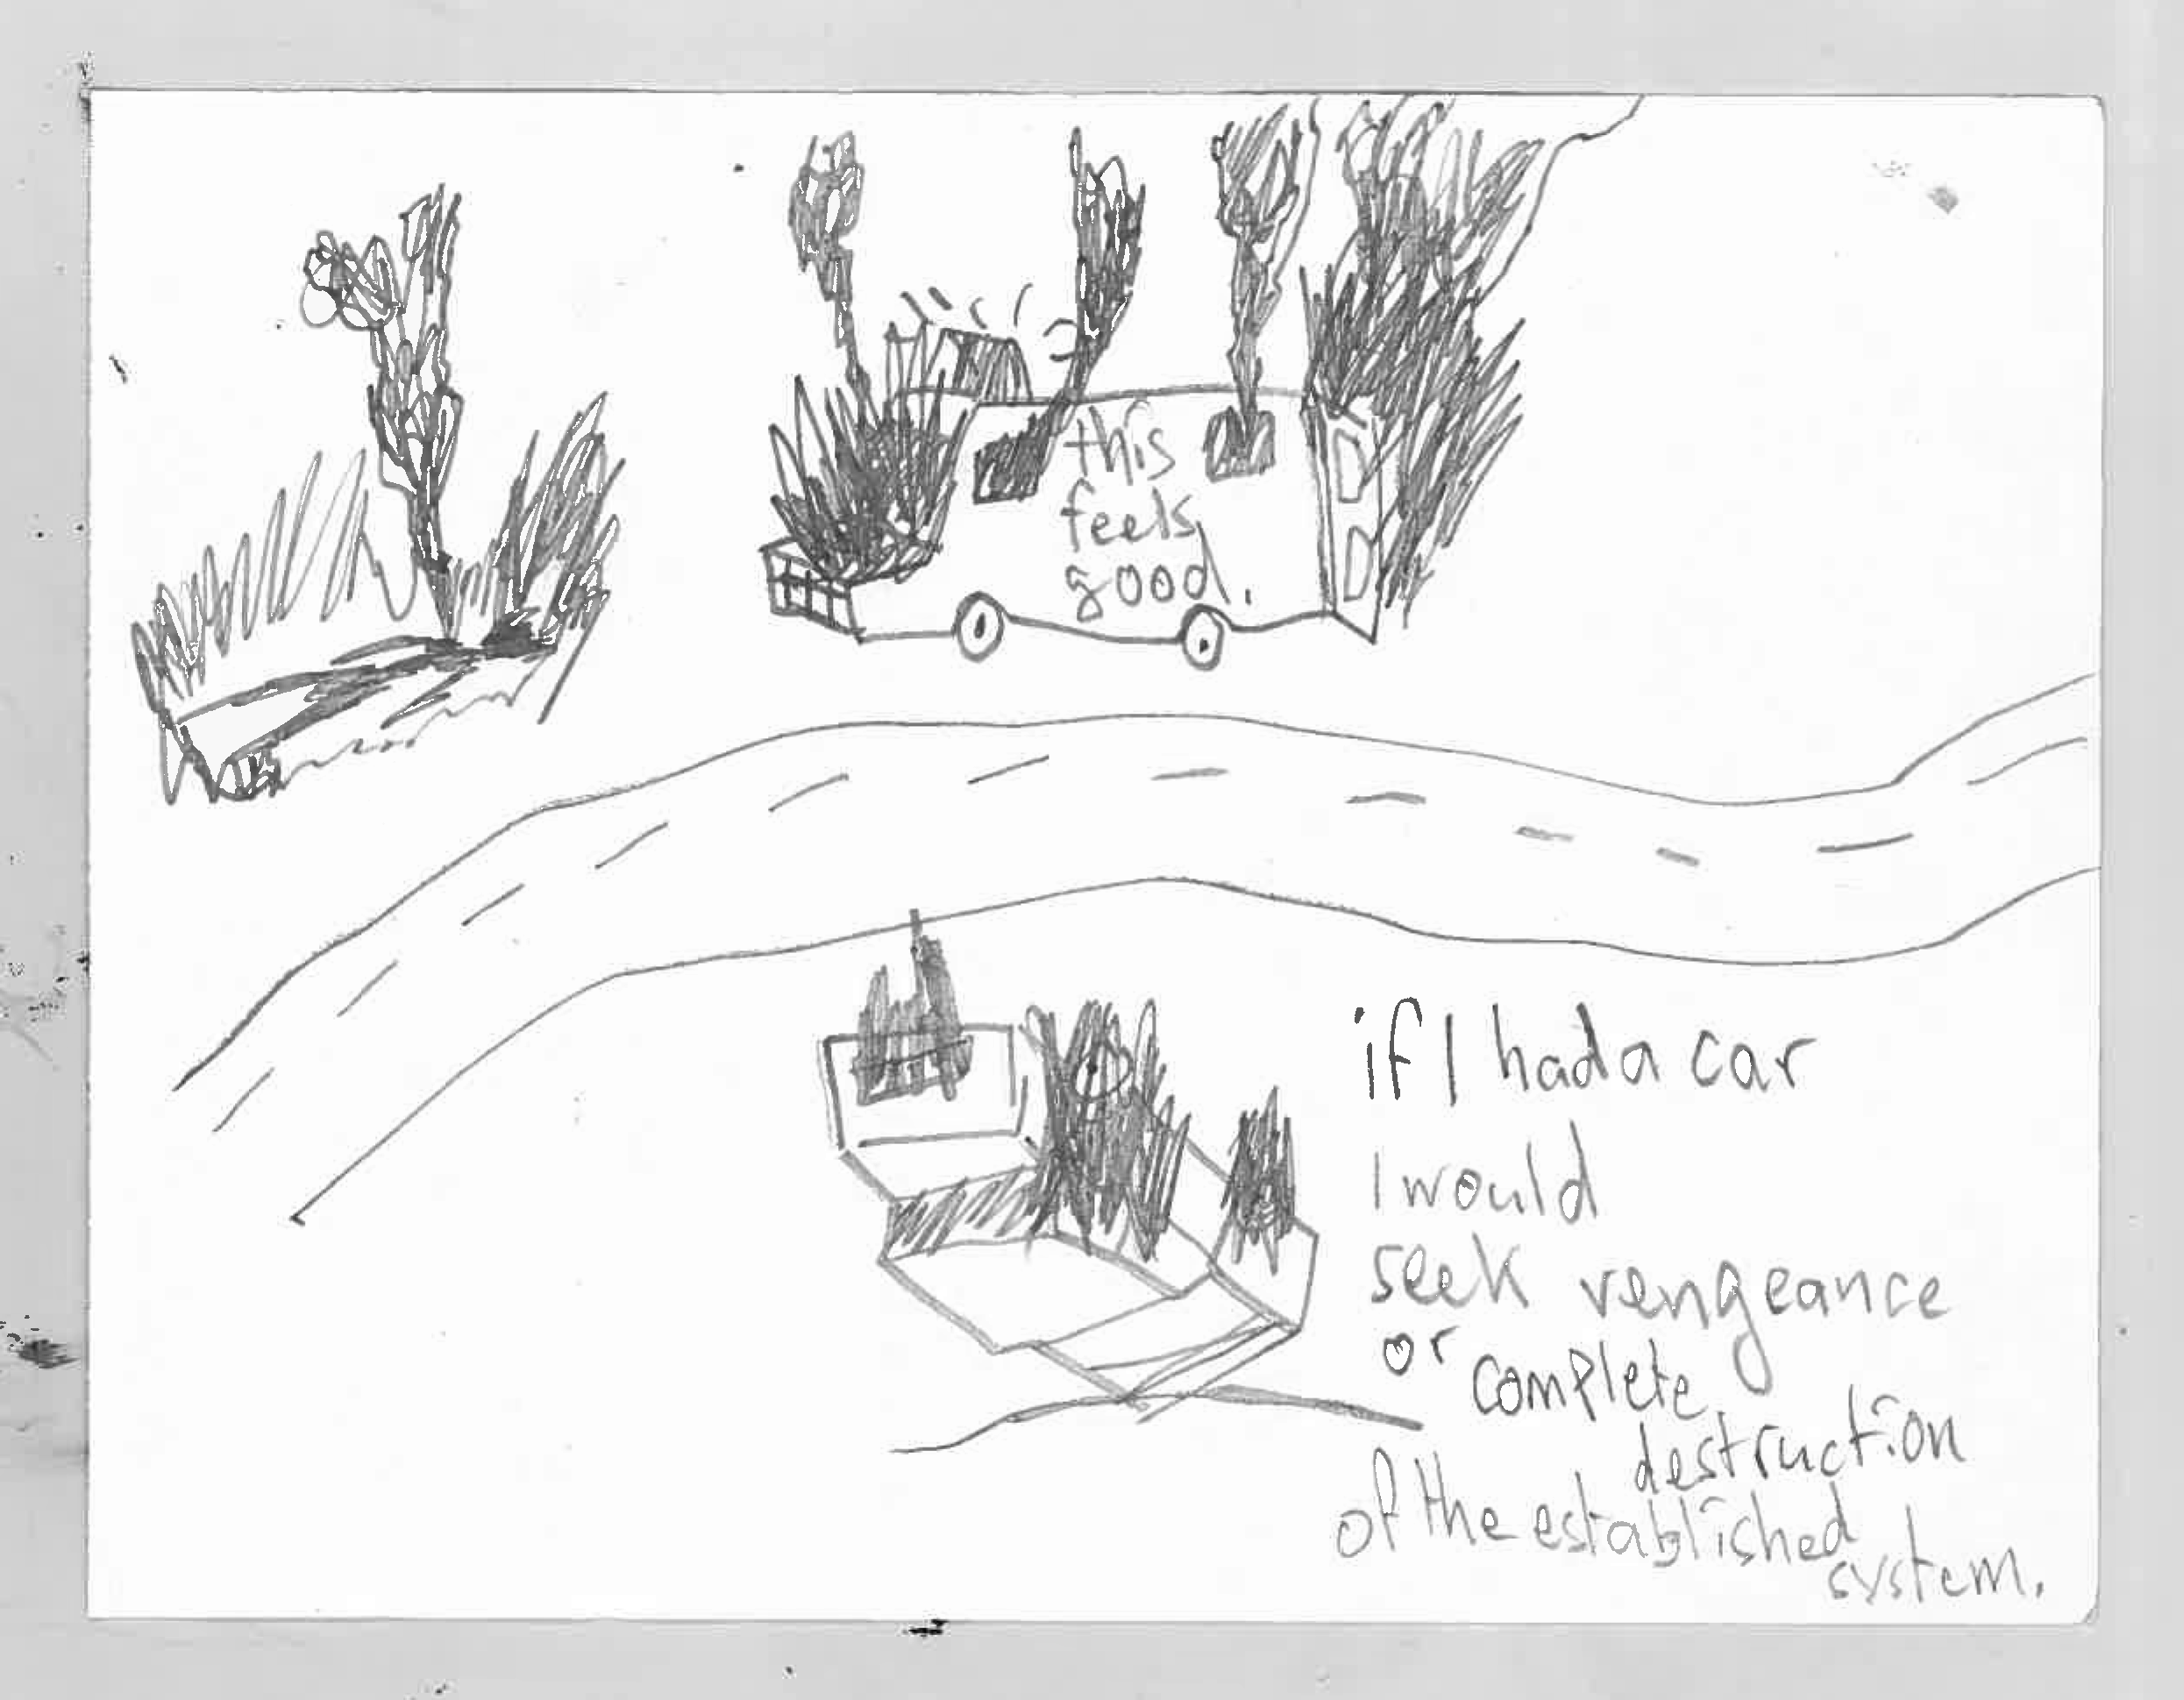 this
feels
good.
if I had a car
I would
seek vengeance
or complete
destruction
of the established
system.